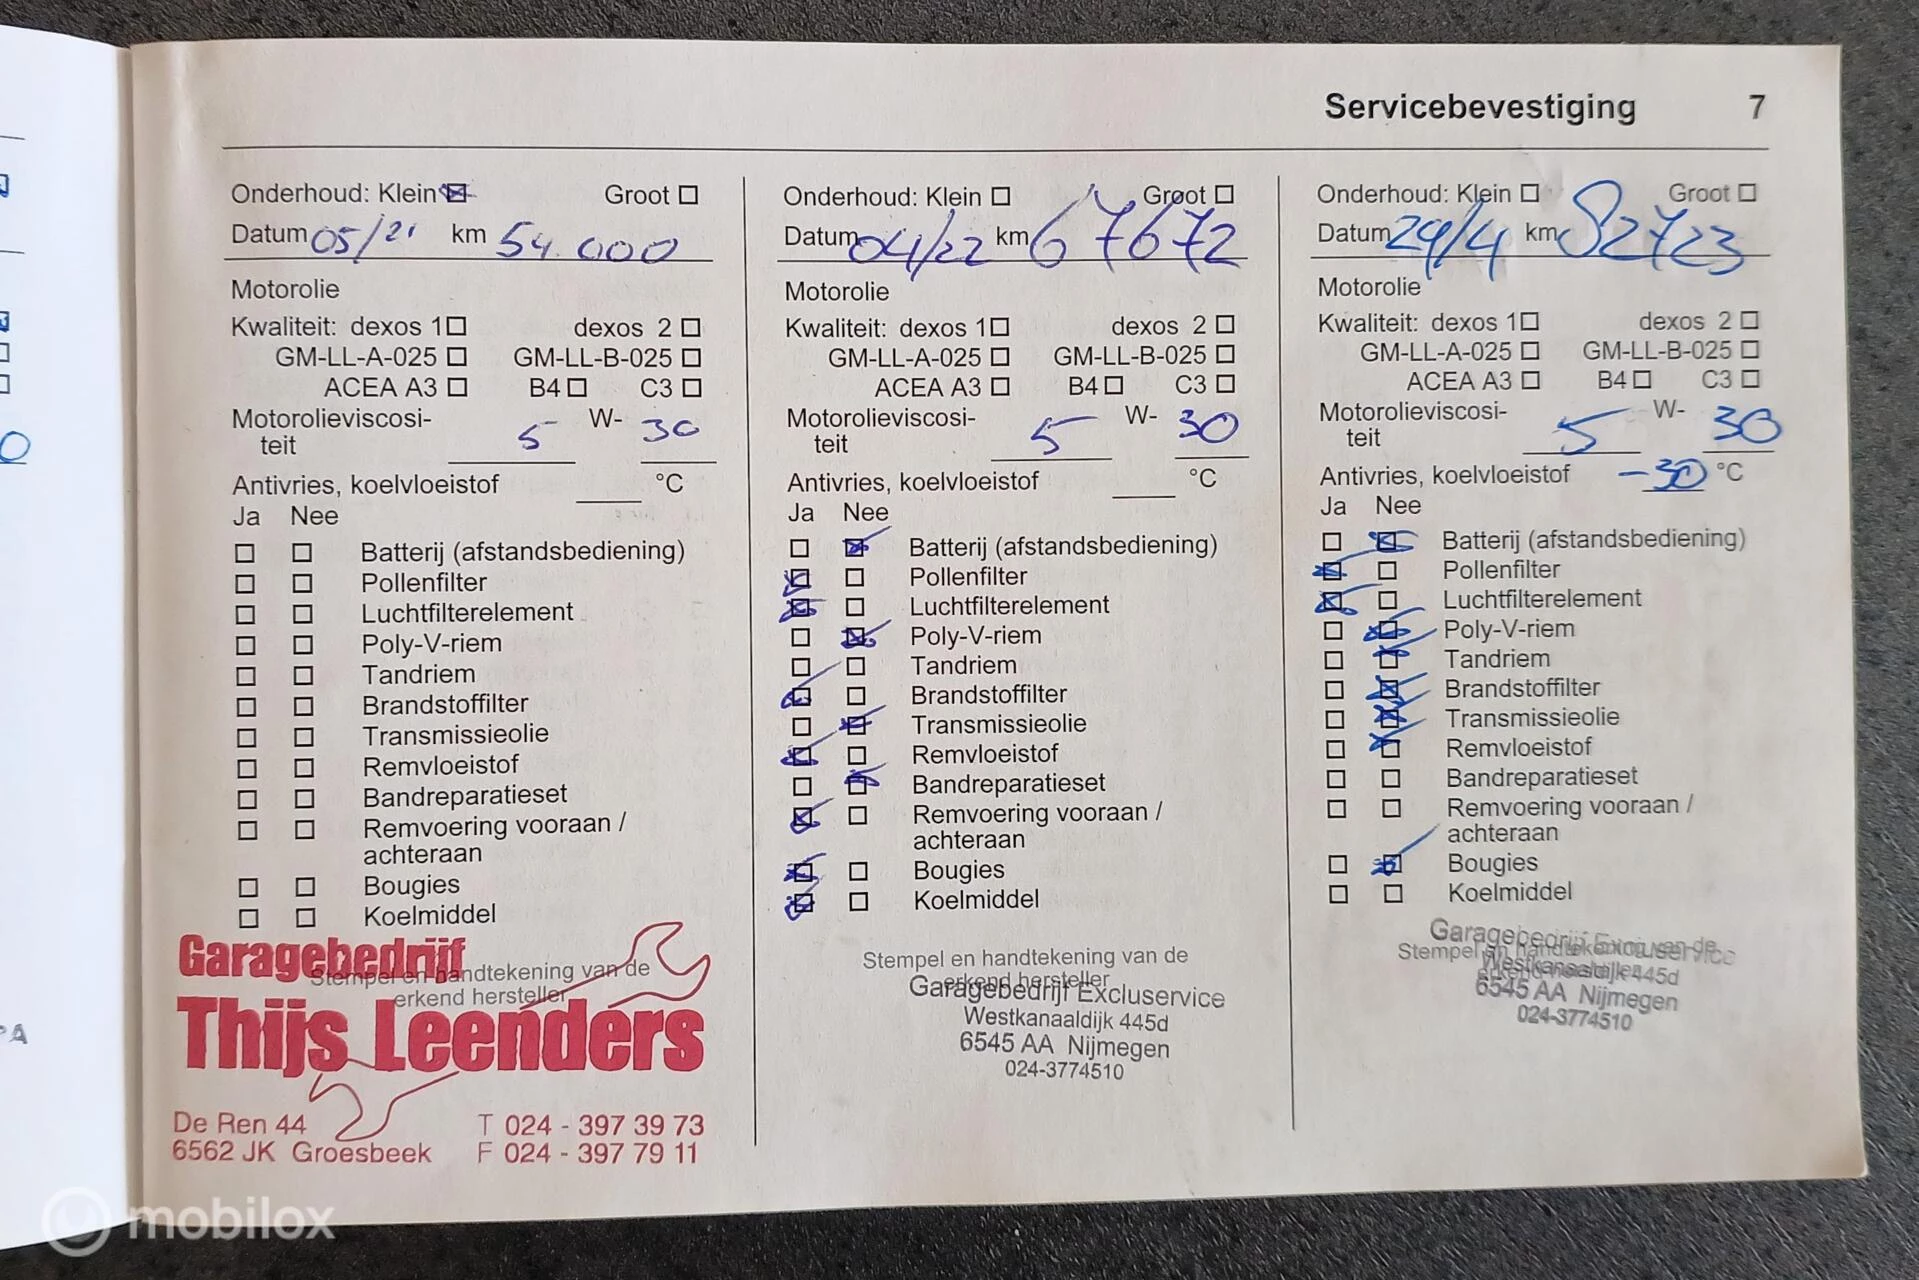 Servicebevestiging 7
Onderhoud: Klein Groot
Datum 05/21 km 54.000
Motorolie
Kwaliteit: dexos 1 dexos 2
GM-LL-A-025 GM-LL-B-025
ACEA A3 B4 C3
Motorolieviscosi-
teit 5 W- 30
Antivries, koelvloeistof °C
Ja Nee
Batterij (afstandsbediening)
Pollenfilter
Luchtfilterelement
Poly-V-riem
Tandriem
Brandstoffilter
Transmissieolie
Remvloeistof
Bandreparatieset
Remvoering vooraan /
achteraan
Bougies
Koelmiddel
Stempel en handtekening van de
erkend hersteller
Garagebedrijf
Thijs Leenders
De Ren 44 T 024 - 397 39 73
6562 JK Groesbeek F 024 - 397 79 11
Onderhoud: Klein Groot
Datum 04/22 km 67672
Motorolie
Kwaliteit: dexos 1 dexos 2
GM-LL-A-025 GM-LL-B-025
ACEA A3 B4 C3
Motorolieviscosi-
teit 5 W- 30
Antivries, koelvloeistof °C
Ja Nee
Batterij (afstandsbediening)
Pollenfilter
Luchtfilterelement
Poly-V-riem
Tandriem
Brandstoffilter
Transmissieolie
Remvloeistof
Bandreparatieset
Remvoering vooraan /
achteraan
Bougies
Koelmiddel
Stempel en handtekening van de
erkend hersteller
Garagebedrijf Excluservice
Westkanaaldijk 445d
6545 AA Nijmegen
024-3774510
Onderhoud: Klein Groot
Datum 24/4 km 82723
Motorolie
Kwaliteit: dexos 1 dexos 2
GM-LL-A-025 GM-LL-B-025
ACEA A3 B4 C3
Motorolieviscosi-
teit 5 W- 30
Antivries, koelvloeistof -30 °C
Ja Nee
Batterij (afstandsbediening)
Pollenfilter
Luchtfilterelement
Poly-V-riem
Tandriem
Brandstoffilter
Transmissieolie
Remvloeistof
Bandreparatieset
Remvoering vooraan /
achteraan
Bougies
Koelmiddel
Stempel en handtekening van de
Garagebedrijf Excluservice
Westkanaaldijk 445d
6545 AA Nijmegen
024-3774510
mobilox